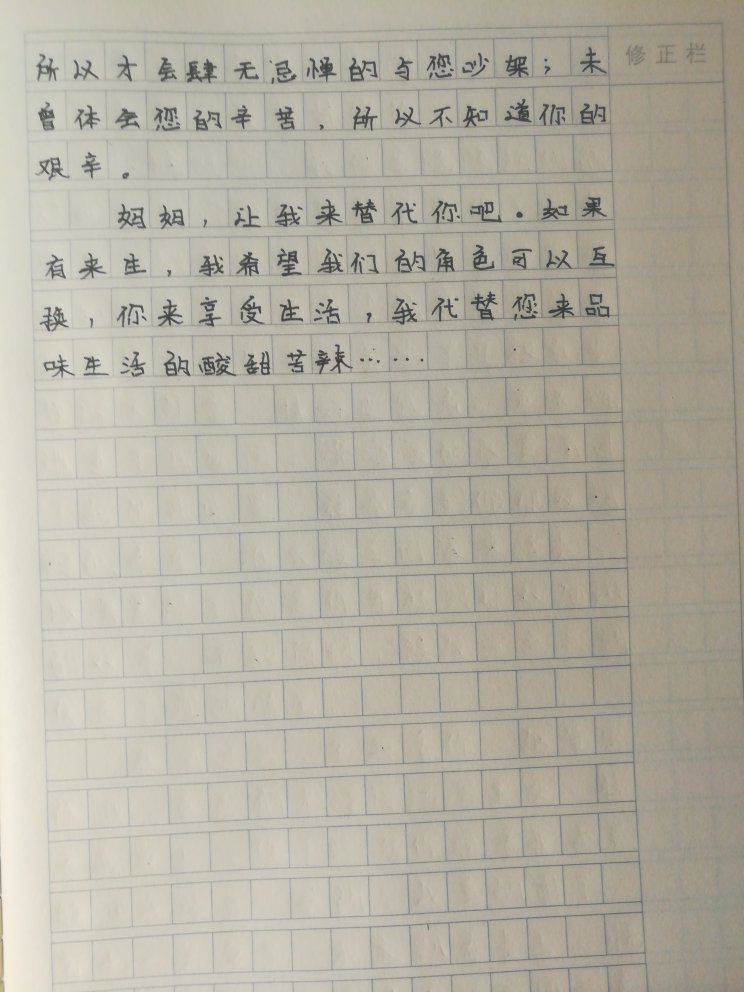 所以才会肆无忌惮的与您吵架；未
修正栏
曾体会您的辛苦，所以不知道你的
艰辛。
妈妈，让我来替代你吧。如果
有来生，我希望我们的角色可以互
换，你来享受生活，我代替您来品
味生活的酸甜苦辣……